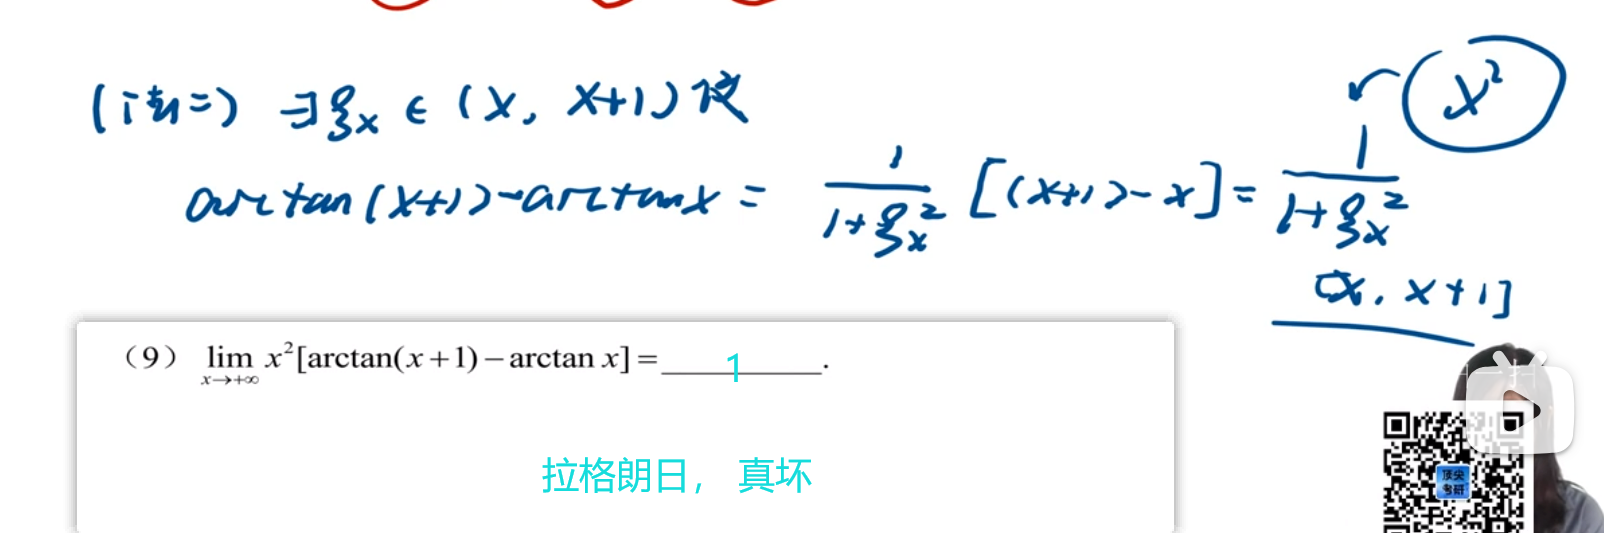 (法二) ∃ξₓ ∈ (x, x+1) 使
x²
arctan(x+1)-arctanx = 1/(1+ξₓ²) [(x+1)-x] = 1/(1+ξₓ²)
[x, x+1]
（9） lim x→+∞ x²[arctan(x+1)−arctan x]=____1____.
拉格朗日， 真坏
顶尖
考研